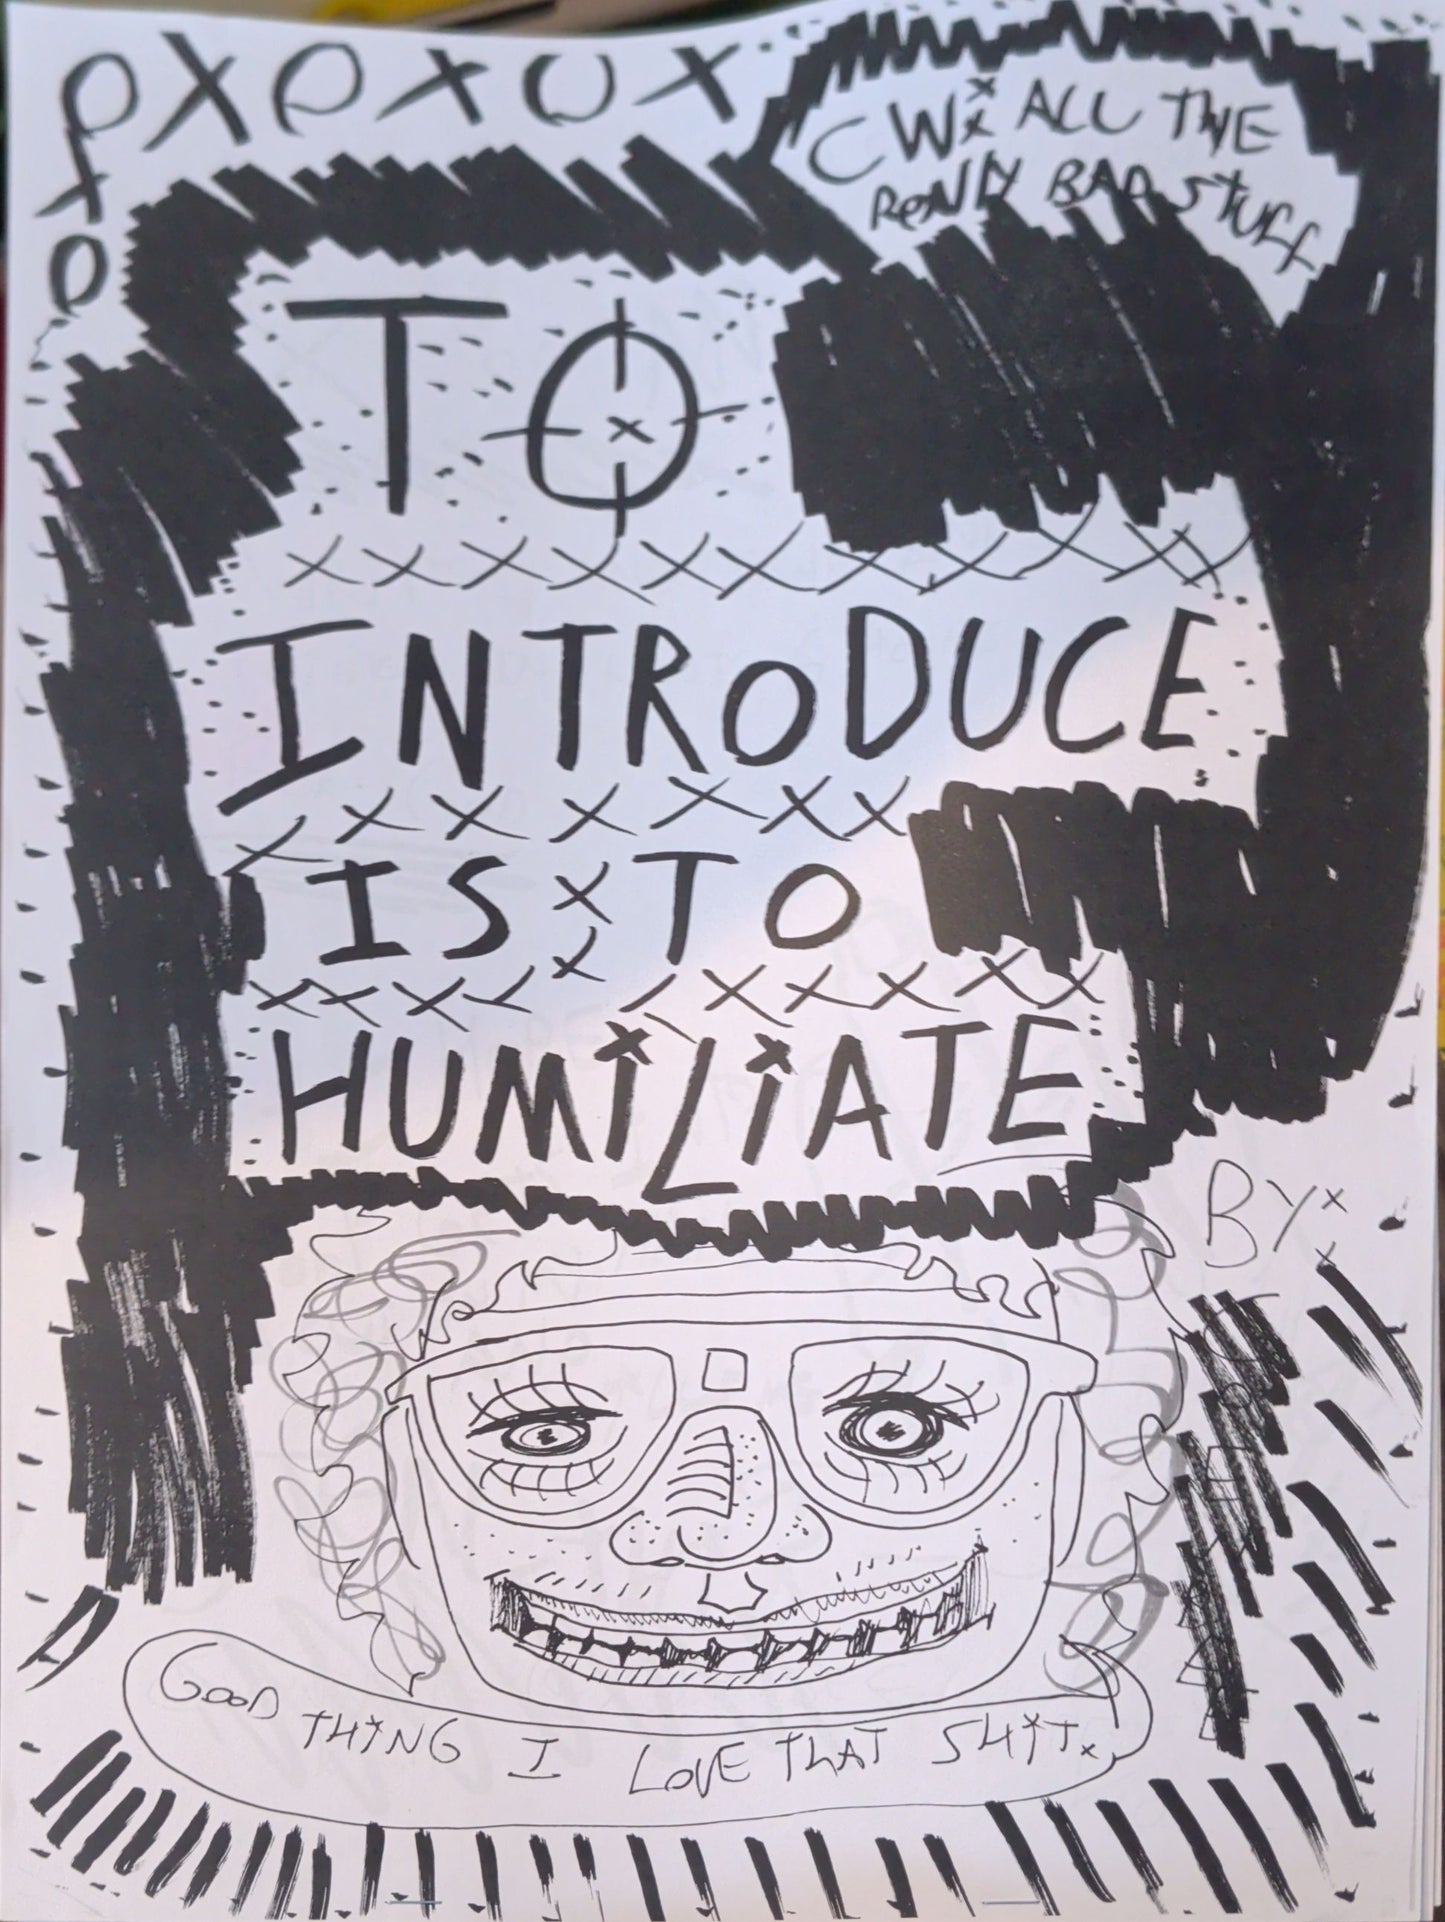 OXOXOX
X
O
CW: ALL THE
REALLY BAD STUFF
TO
XXXXXXXXXXX
INTRODUCE
XXXXXXX
IS X TO
XXXXXXXXXXX
HUMiLiATE
BY:
GOOD THiNG I LOVE THAT SHiT.